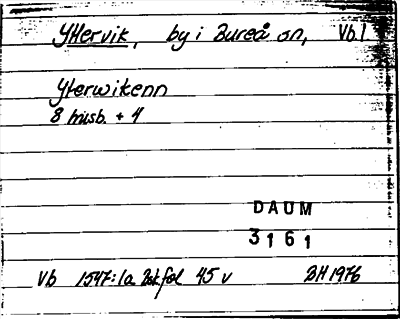 Yttervik, by i Bureå sn, Vb.
Yterwikenn
8 husb. + 4
DAUM
3161
Vb 1547:1a fol 45 v BH 1976